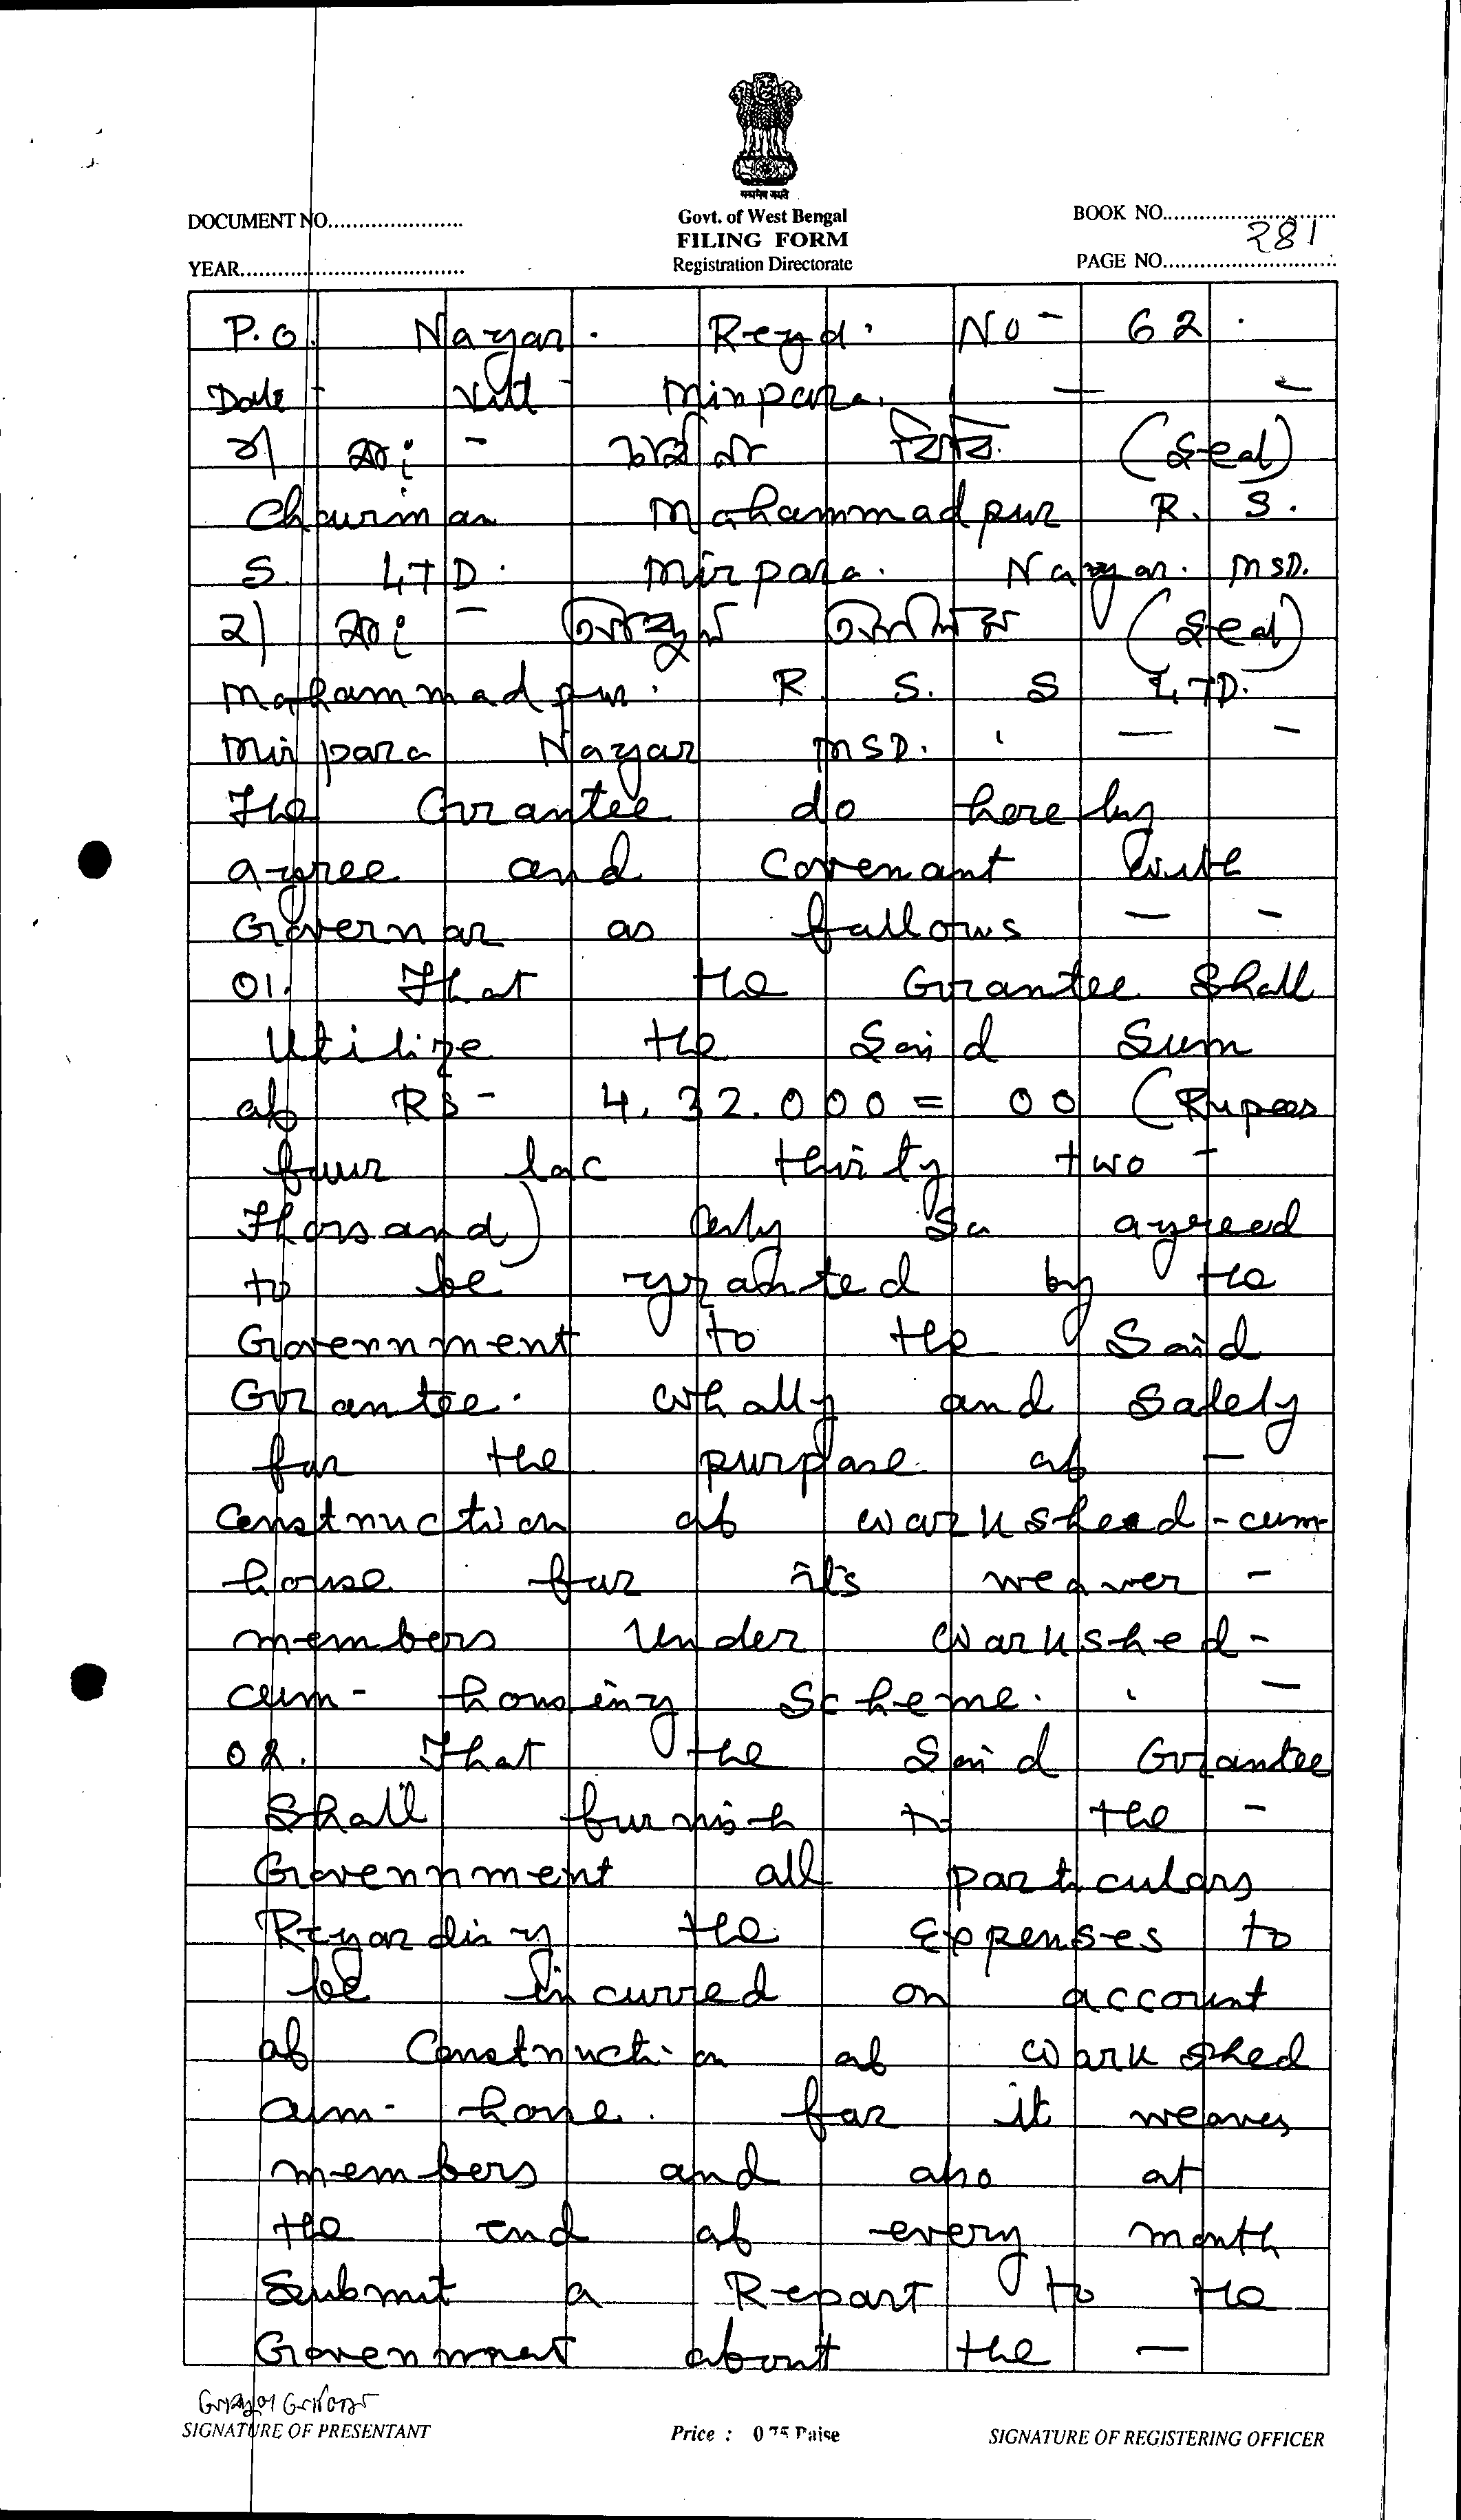 सत्यमेव जयते
Govt. of West Bengal
FILING FORM
Registration Directorate
DOCUMENT NO.
BOOK NO.
YEAR
PAGE NO. 281
P.O. Nagar. Regd. No - 62.
Date - Vill - Mirpara. — —
১) স্বাঃ - (Seal)
Chairman Mahammadpur R. S.
S. LTD. Mirpara. Nagar. MSD.
২) স্বাঃ - (Seal)
Mahammadpur. R. S. S LTD.
Mirpara Nagar MSD. — —
The Grantee do hereby
agree and covenant with
Governor as follows — —
01. That the Grantee Shall
Utilize the Said Sum
of RS - 4.32.000 = 00 (Rupees
four lac thirty two -
Thousand) only So agreed
to be granted by the
Government to the Said
Grantee. wholly and Solely
for the purpose of —
Construction of worksheed-cum-
house for it's weaver -
members Under workshed-
cum- housing Scheme. —
02. That the Said Grantee
Shall furnish to the -
Government all particulars
Regarding the Expenses to
be incurred on account
of Construction of workshed
cum- house. for it weaves
members and also at
the end of every month
Submit a Report to the
Government about the —
SIGNATURE OF PRESENTANT
Price : 0 75 Paise
SIGNATURE OF REGISTERING OFFICER